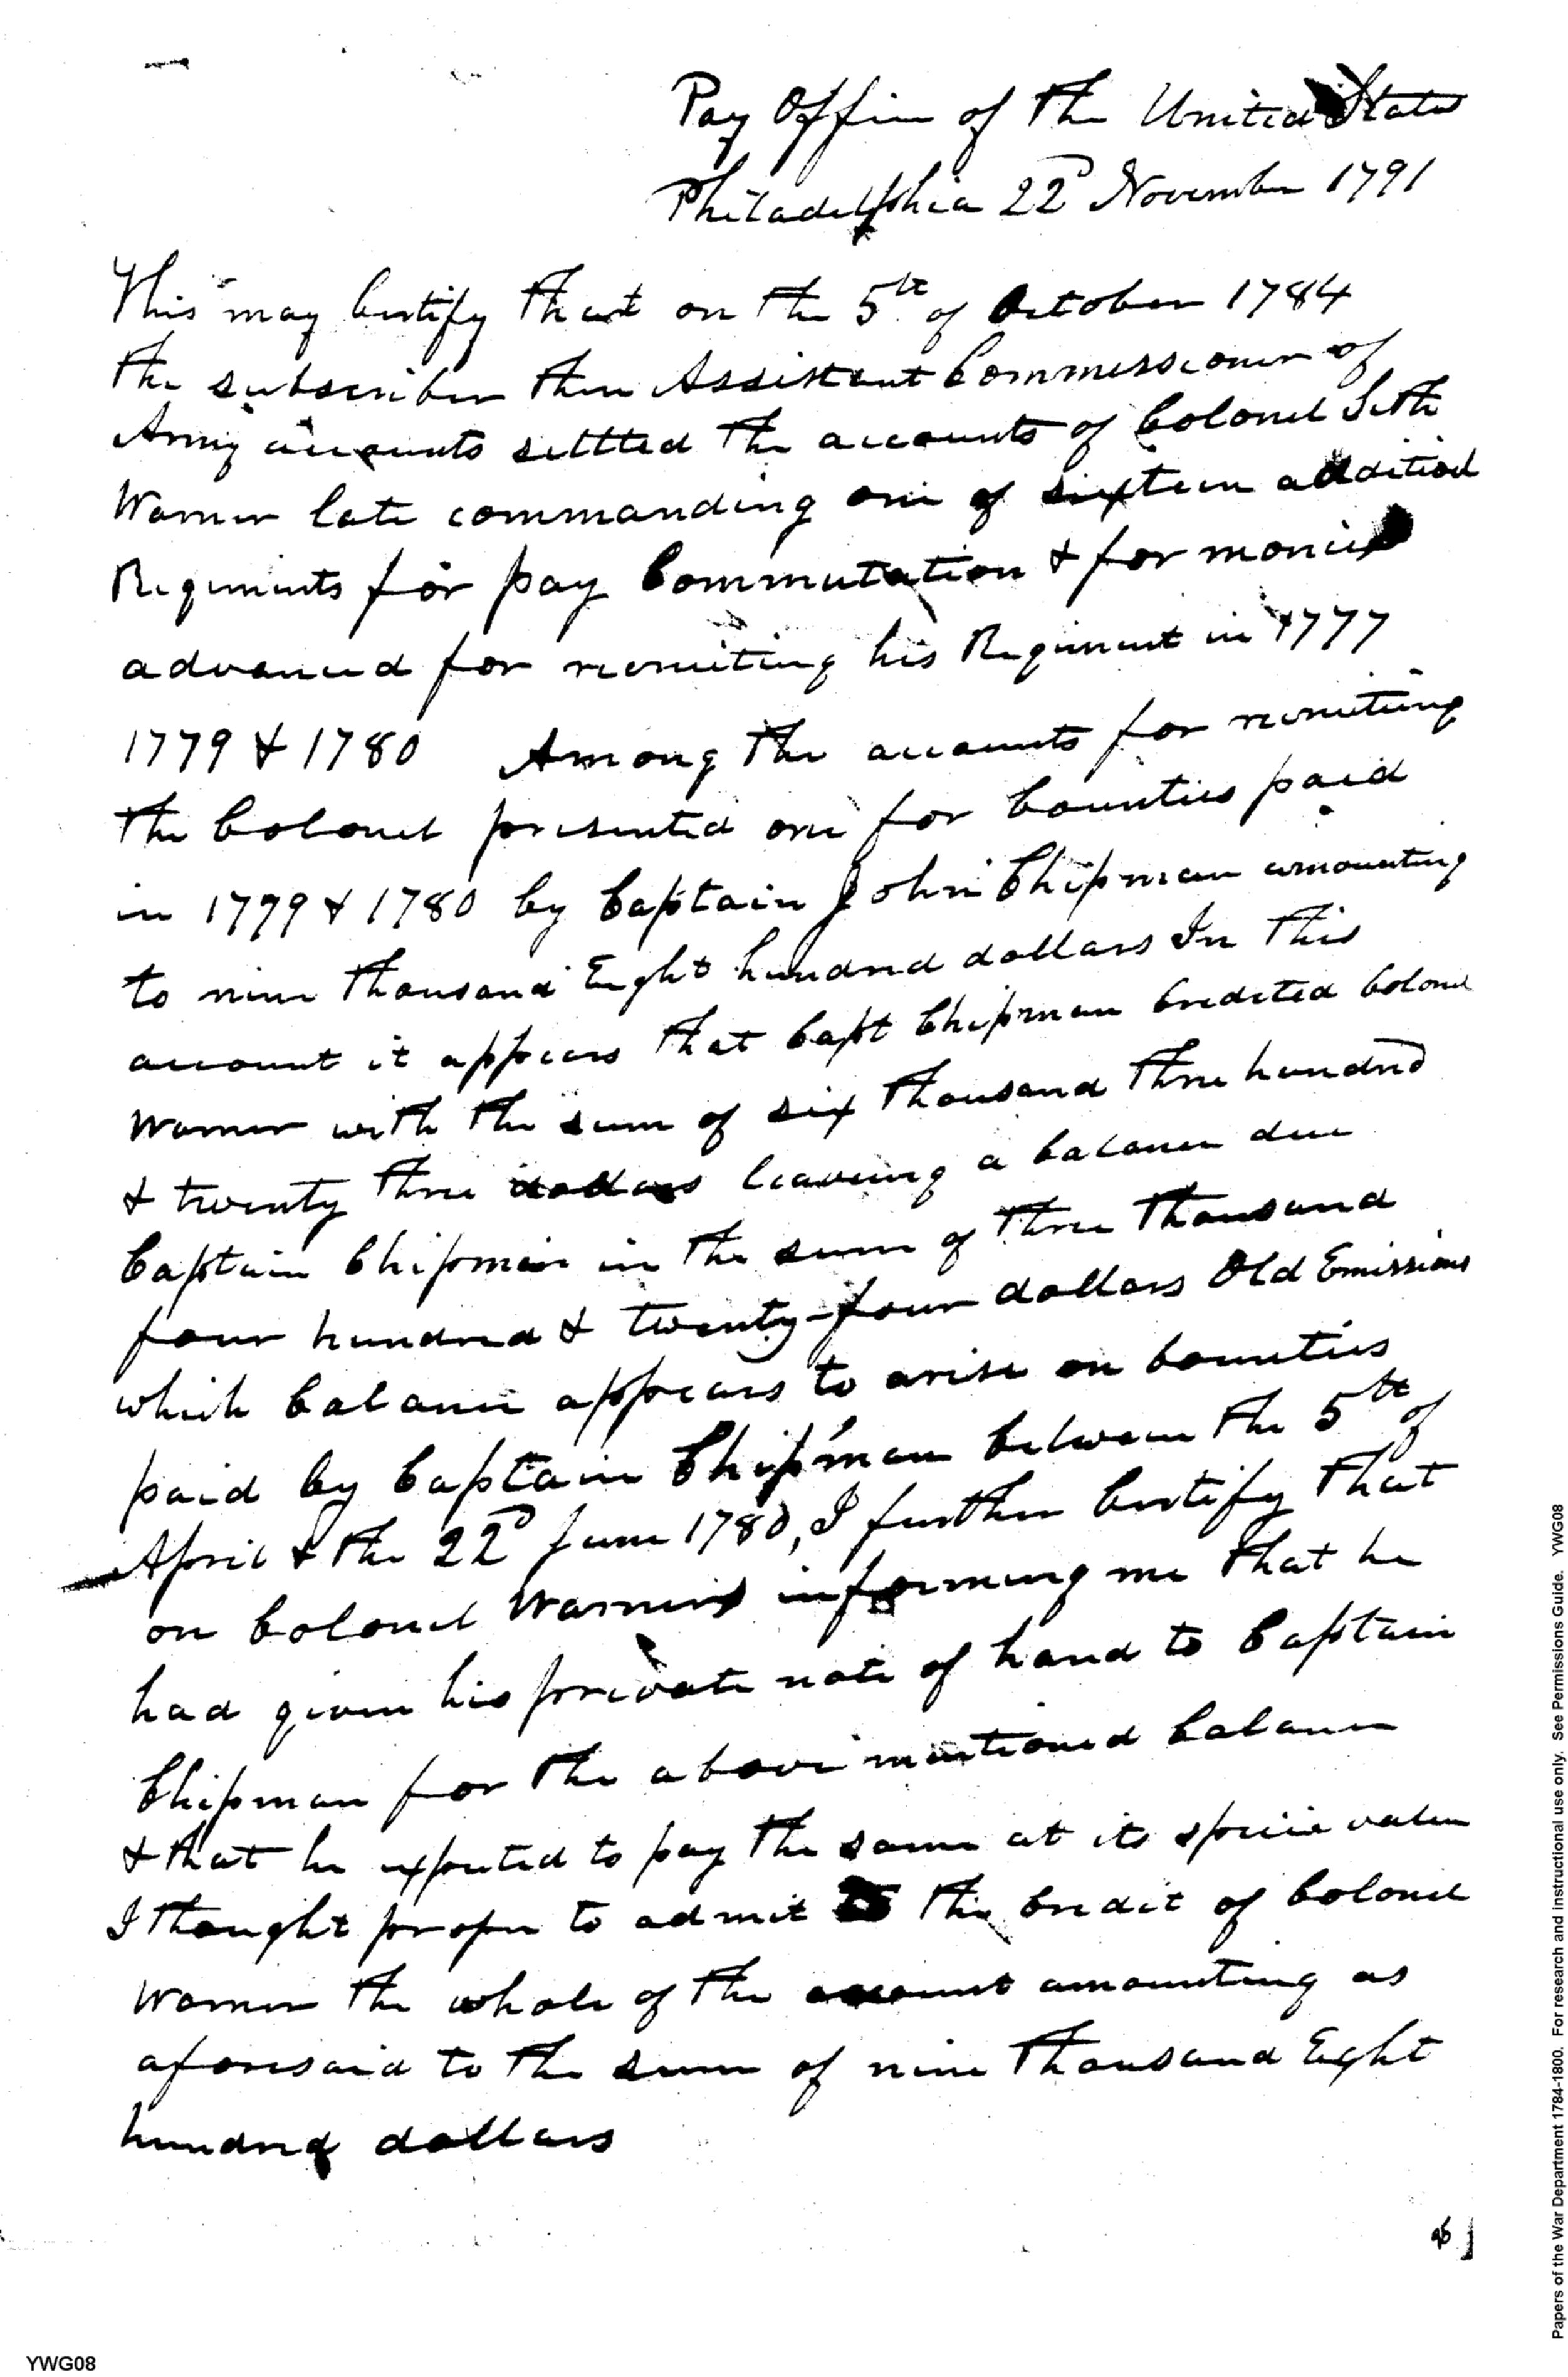 Pay Office of the United States
Philadelphia 22d November 1791
This may Certify that on the 5th of October 1784
the subscriber then Assistant Commissioner of
Army accounts settled the accounts of Colonel Seth
Warner late commanding one of sixteen additiod
Regiments for pay Commutation & for monies
advanced for recruiting his Regiment in 1777
1779 & 1780 Among the accounts for recruiting
the Colonel presented one for bounties paid
in 1779 & 1780 by Captain John Chipman amounting
to nine thousand Eight hundred dollars In this
account it appears that Capt Chipman Credited Colonel
Warner with the sum of six thousand three hundred
& twenty three dollars leaving a balance due
Captain Chipman in the sum of three thousand
four hundred & twenty-four dollars Old Emissions
which balance appears to arise on bounties
paid by Captain Chipman between the 5th of
April & the 22d June 1780, I further Certify that
on Colonel Warners informing me that he
had given his private note of hand to Captain
Chipman for the above mentioned balance
& that he expected to pay the same at its specie value
I thought proper to admit to the Credit of Colonel
Warner the whole of the account amounting as
aforesaid to the sum of nine thousand Eight
hundred dollars
YWG08
Papers of the War Department 1784-1800. For research and instructional use only. See Permissions Guide. YWG08